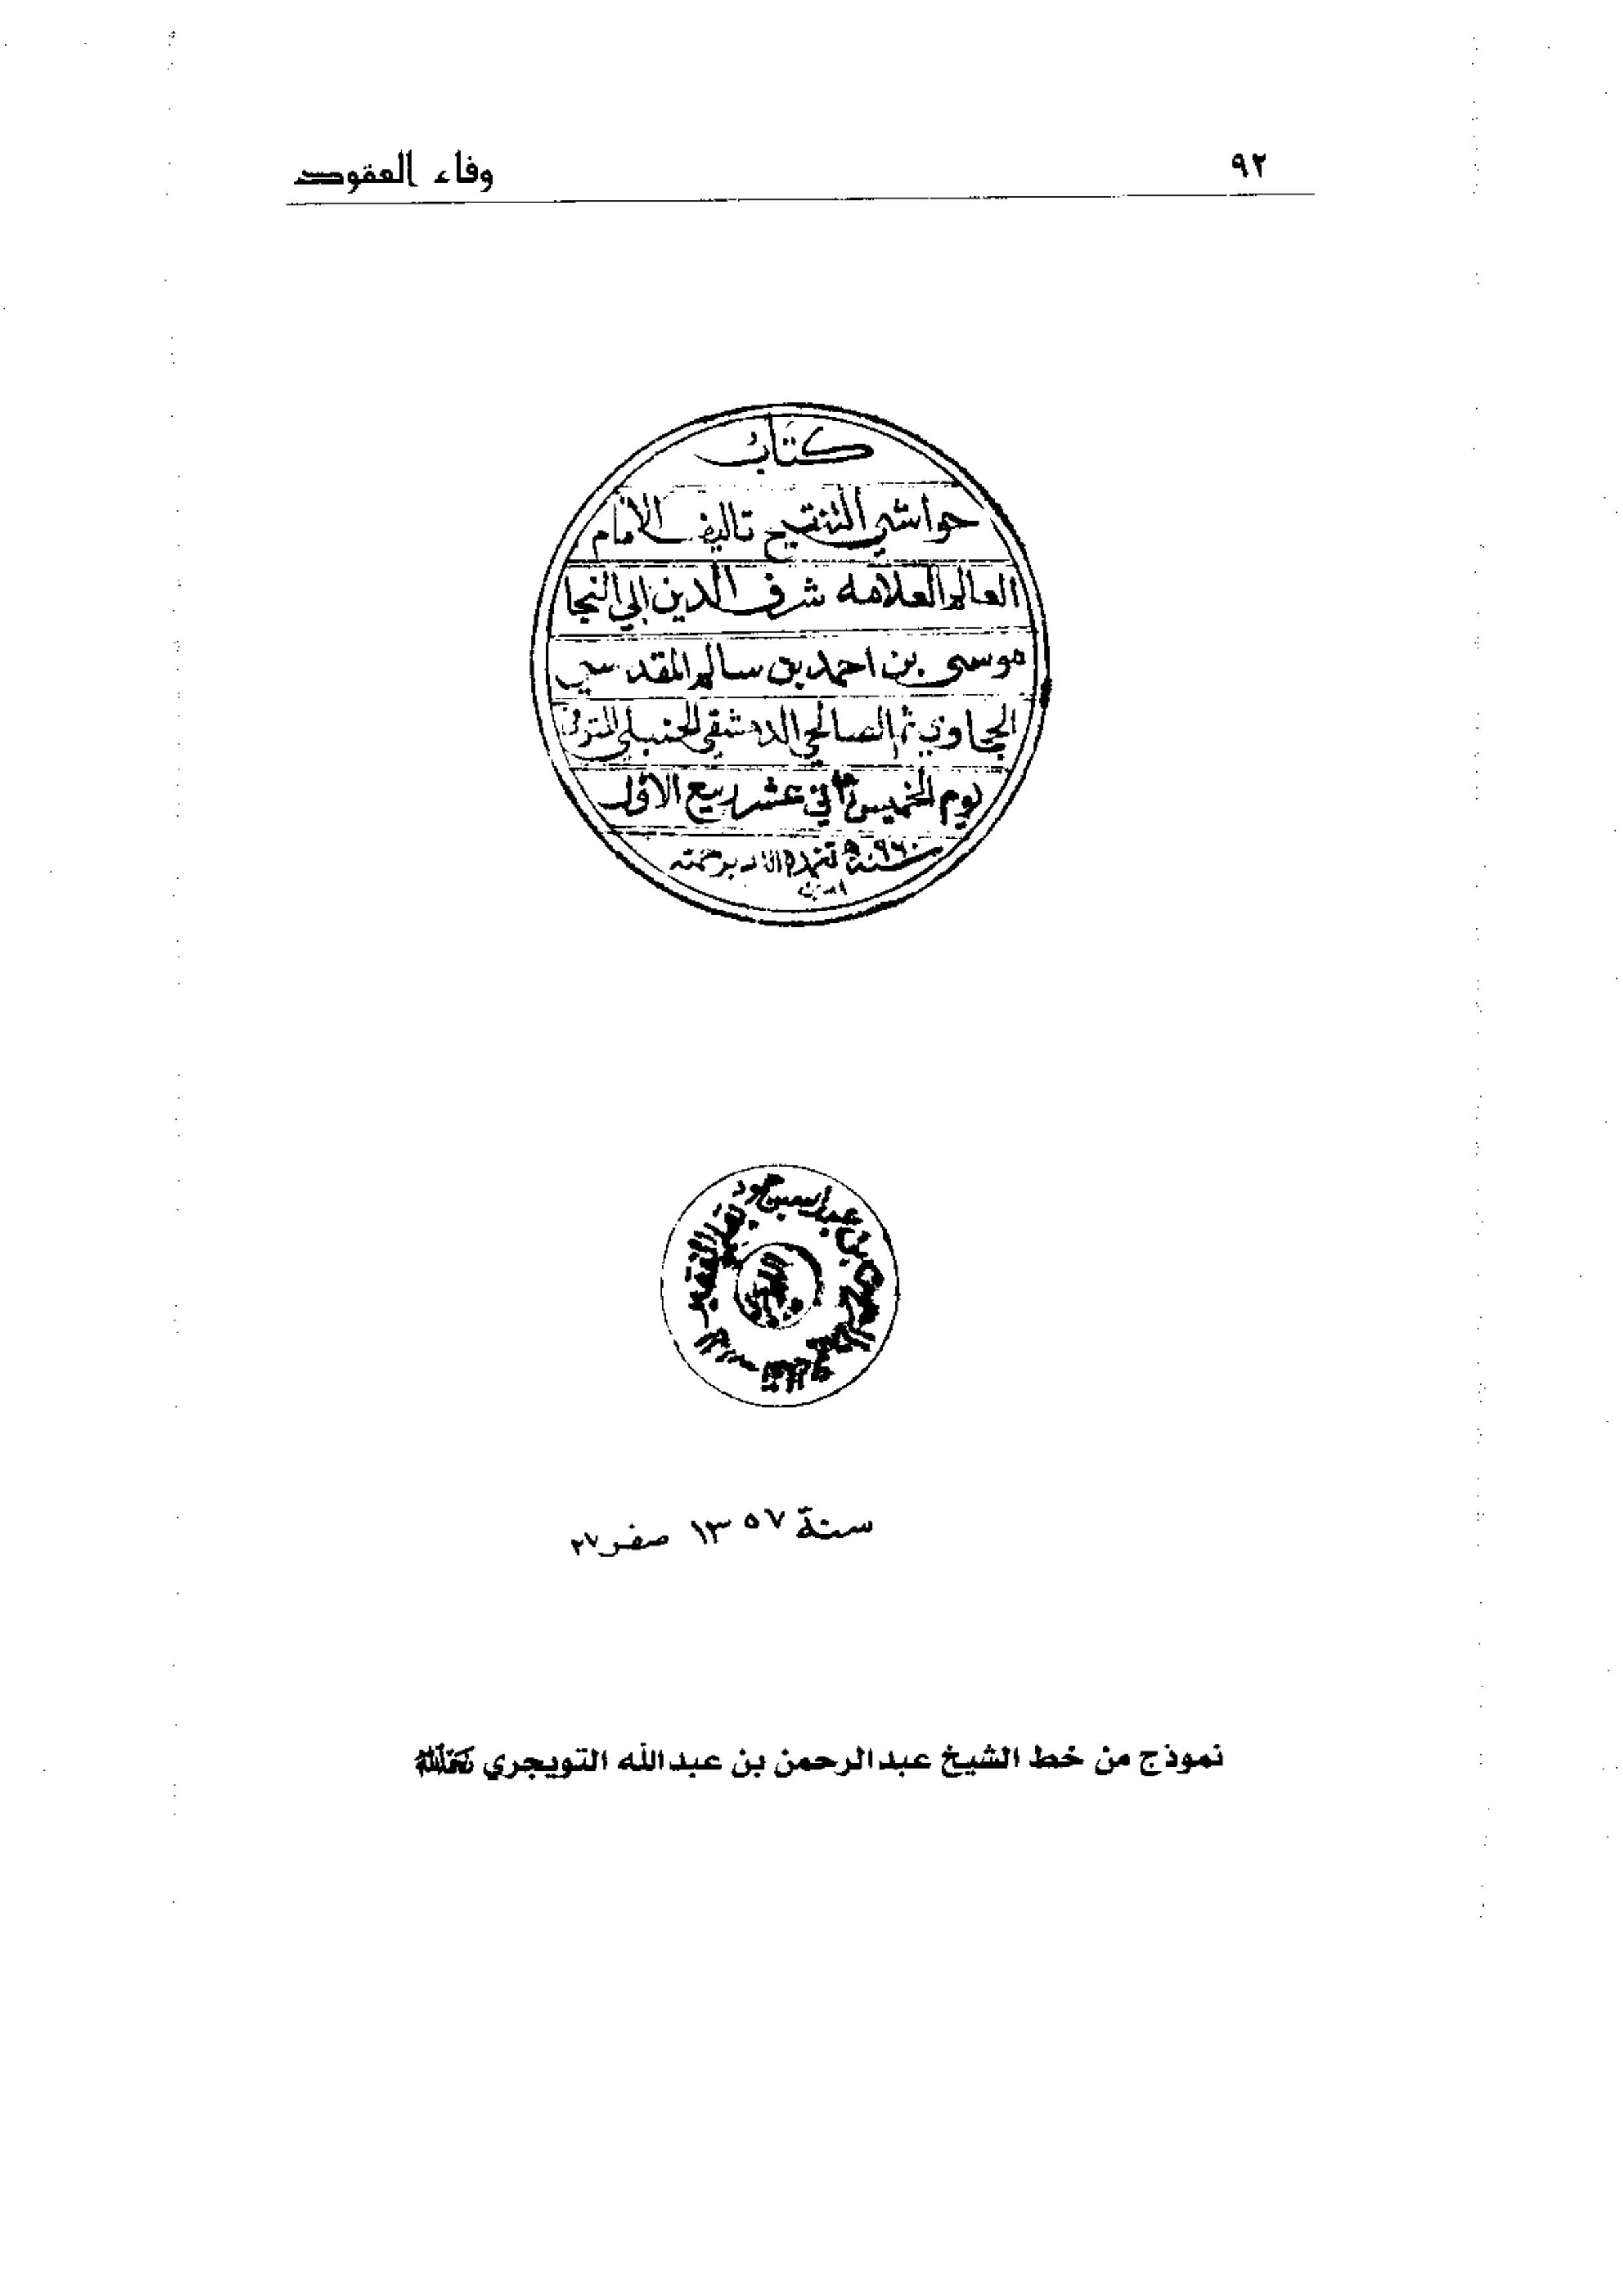 ٩٢
وفاء العقود
كتاب
حواشي التنقيح تاليف الامام
العالم العلامه شرف الدين ابي النجا
موسى بن احمد بن سالم المقدسي
الحجاوي ثم الصالحي الدمشقي الحنبلي المتوفى
يوم الخميس ثاني عشر ربيع الاول
سنة ٩٦٠ تغمده الله برحمته
امين
سنة ١٣٥٧ صفر ٢٧
نموذج من خط الشيخ عبدالرحمن بن عبدالله التويجري رَحِمَهُ اللهُ